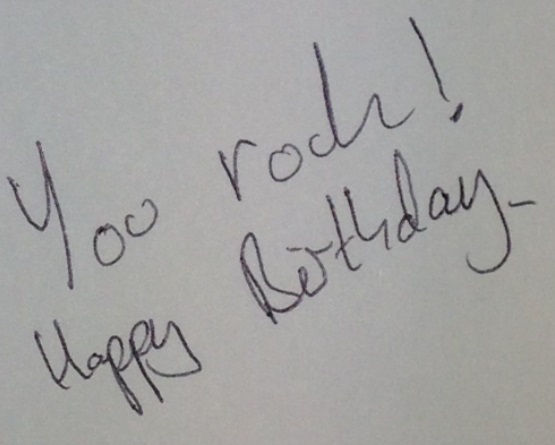 You rock!
Happy Birthday.